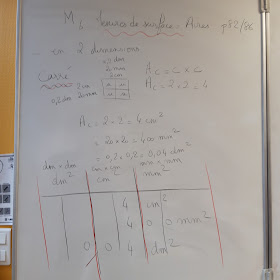 M₁ Mesures de surface. Aires p 82/86
en 2 dimensions
Carré
0,2 dm
20 mm
2 cm
0,2 dm 20 mm 2 cm
A_C = C × C
A_C = 2 × 2 = 4
A_C = 2 × 2 = 4 cm²
= 20 × 20 = 400 mm²
= 0,2 × 0,2 = 0,04 dm²
dm × dm cm × cm mm × mm
dm² cm² mm²
4 cm²
4 0 0 mm²
0 0 4 dm²